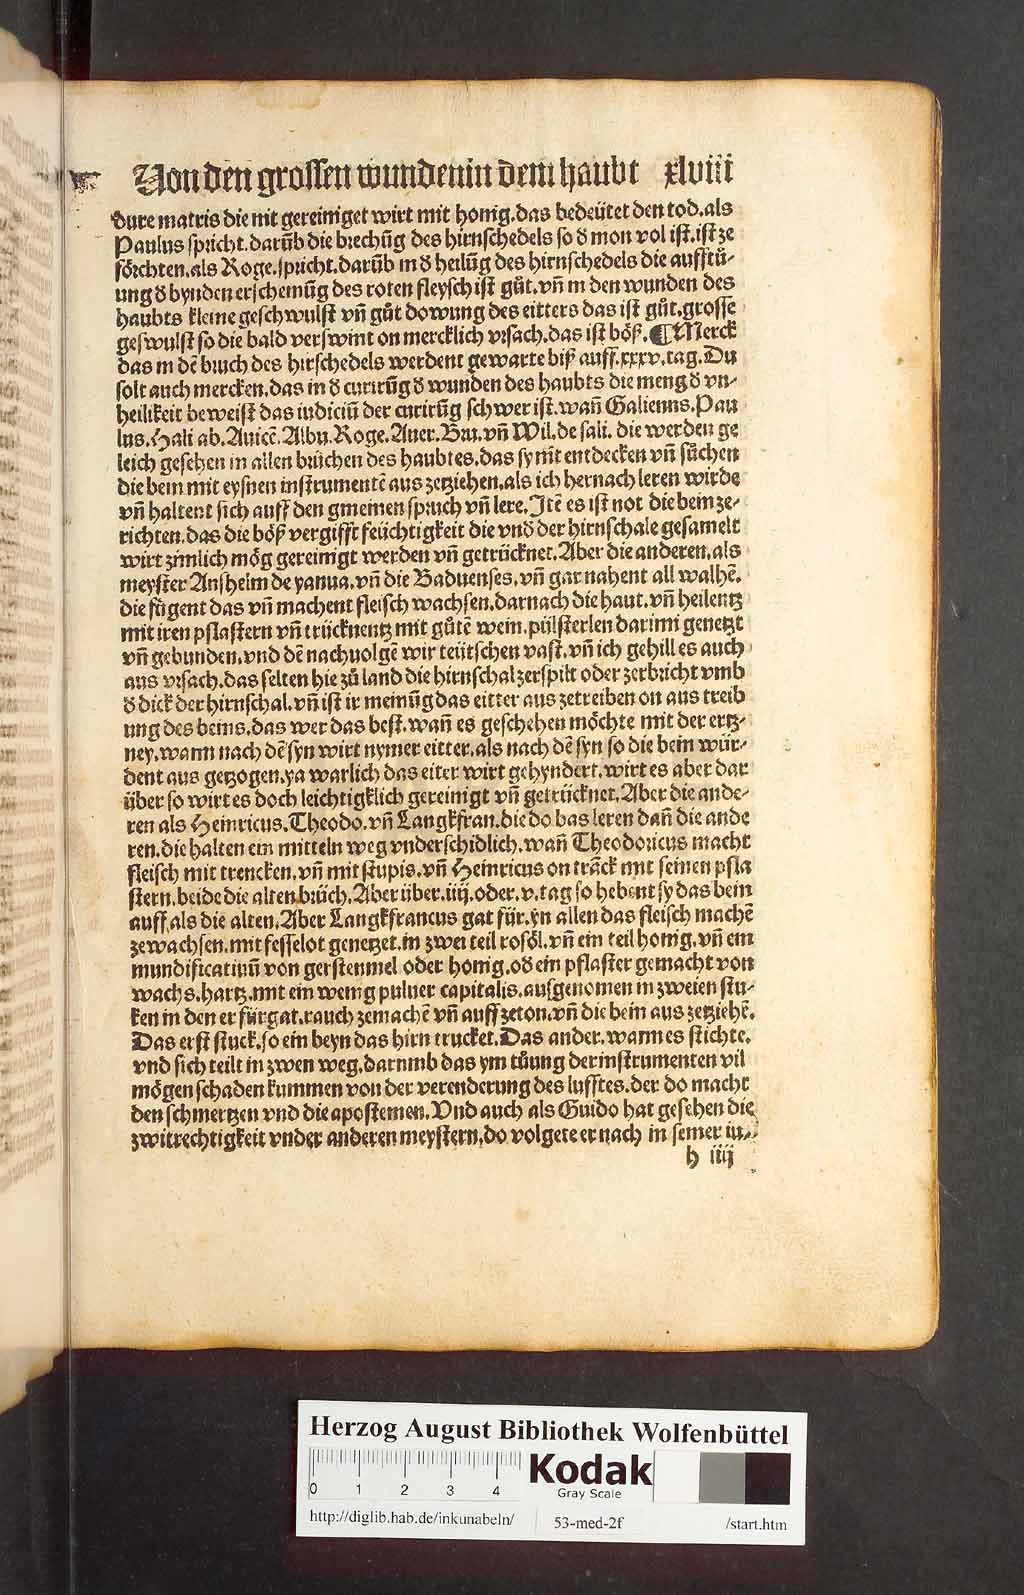 Von den grossen wundenin dem haubt xlviii
dure matris die nit gereiniget wirt mit honig.das bedeütet den tod.als
Paulus spricht.darūb die brechūg des hirnschedels so d mon vol ist.ist ze
förchten.als Roge.spricht.darūb in d heilūg des hirnschedels die aufftů-
ung d bynden erscheinūg des roten fleysch ist gůt.vn̄ in den wunden des
haubts kleine geschwulst vn̄ gůt dowung des eitters das ist gůt.grosse
geswulst so die bald verswint on mercklich vrsach.das ist böß.¶Merck
das in dē bruch des hirschedels werdent gewarte biß auff.xxxv.tag.Du
solt auch mercken.das in d curirūg d wunden des haubts die meng d vn-
heilikeit beweist das iudiciū der curirūg schwer ist.wan̄ Galienus.Pau
lus.Hali ab.Auicē.Albu.Roge.Auer.Bru.vn̄ Wil.de sali. die werden ge
leich gesehen in allen brüchen des haubtes.das sy mit entdecken vn̄ sůchen
die bein mit eysnen instrumentē aus zetziehen.als ich hernach leren wirde
vn̄ haltent sich auff den gmeinen spruch vn̄ lere.Itē es ist not die bein ze-
richten.das die böß vergifft feüchtigkeit die vnd der hirnschale gesamelt
wirt zimlich mög gereinigt werden vn̄ getrücknet.Aber die anderen.als
meyster Anshelm de yanua.vn̄ die Baduenses.vn̄ gar nahent all walhē.
die fůgent das vn̄ machent fleisch wachsen.darnach die haut.vn̄ heilentz
mit iren pflastern vn̄ trücknentz mit gůtē wein.pülsterlen darinn genetzt
vn̄ gebunden.vnd dē nachuolgē wir teütschen vast.vn̄ ich gehill es auch
aus vrsach.das selten hie zů land die hirnschal zerspilt oder zerbricht vmb
d dick der hirnschal.vn̄ ist ir meinūg das eitter aus zetreiben on aus treib
ung des beins.das wer das best.wan̄ es geschehen möchte mit der ertz-
ney.wann nach dē syn wirt nymer eitter.als nach dē syn so die bein wür-
dent aus getzogen.ya warlich das eiter wirt gehyndert.wirt es aber dar
über so wirt es doch leichtigklich gereinigt vn̄ getrücknet.Aber die ande-
ren als Heinricus.Theodo.vn̄ Langkfran.die do bas leren dan̄ die ande
ren.die halten ein mitteln weg vnderschidlich.wan̄ Theodoricus macht
fleisch mit trencken.vn̄ mit stupis.vn̄ Heinricus on trāck mit seinen pfla
stern.beide die alten brüch.Aber über.iiij.oder.v.tag so hebent sy das bein
auff als die alten.Aber Langkfrancus gat für.yn allen das fleisch machē
zewachsen.mit fesselot genetzet.in zwei teil rosöl.vn̄ ein teil honig.vn̄ ein
mundificatiuū von gerstenmel oder honig.od ein pflaster gemacht von
wachs.hartz.mit ein wenig puluer capitalis.ausgenomen in zweien stu-
ken in den er fürgat.rauch zemachē vn̄ auff zeton.vn̄ die bein aus zetziehē.
Das erst stuck.so ein beyn das hirn trucket.Das ander.wann es stichte.
vnd sich teilt in zwen weg.darumb das ym tůung der instrumenten vil
mögen schaden kummen von der verenderung des lufftes.der do macht
den schmertzen vnd die apostemen.Vnd auch als Guido hat gesehen die
zwitrechtigkeit vnder anderen meystern.do volgete er nach in seiner iu-
h iiij
Herzog August Bibliothek Wolfenbüttel
0 1 2 3 4
Kodak
Gray Scale
http://diglib.hab.de/inkunabeln/ 53-med-2f /start.htm